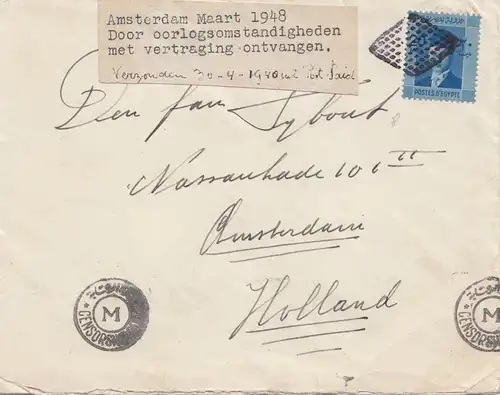 Amsterdam Maart 1948
Door oorlogsomstandigheden
met vertraging ontvangen.
Verzonden 30-4-1940 uit Port Said
POSTES D'EGYPTE
Den Jan Sybout
Nassaukade 101 II
Amsterdam
Holland
M
CENSORSHIP
M
CENSORSHIP